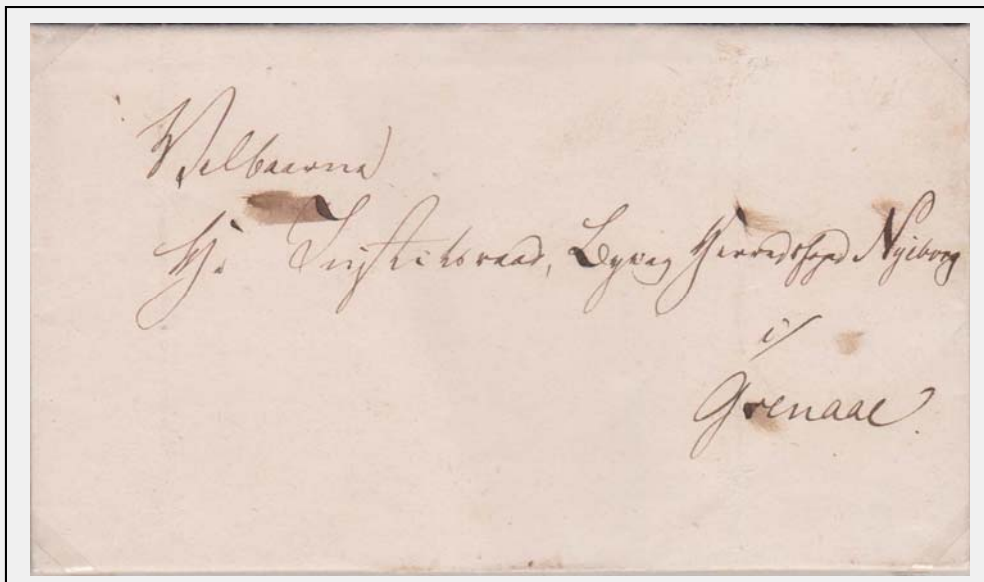 Velbaarne
Hr. Justitsraad, By og Herredsfoged Nyeborg
i/
Grenaae.